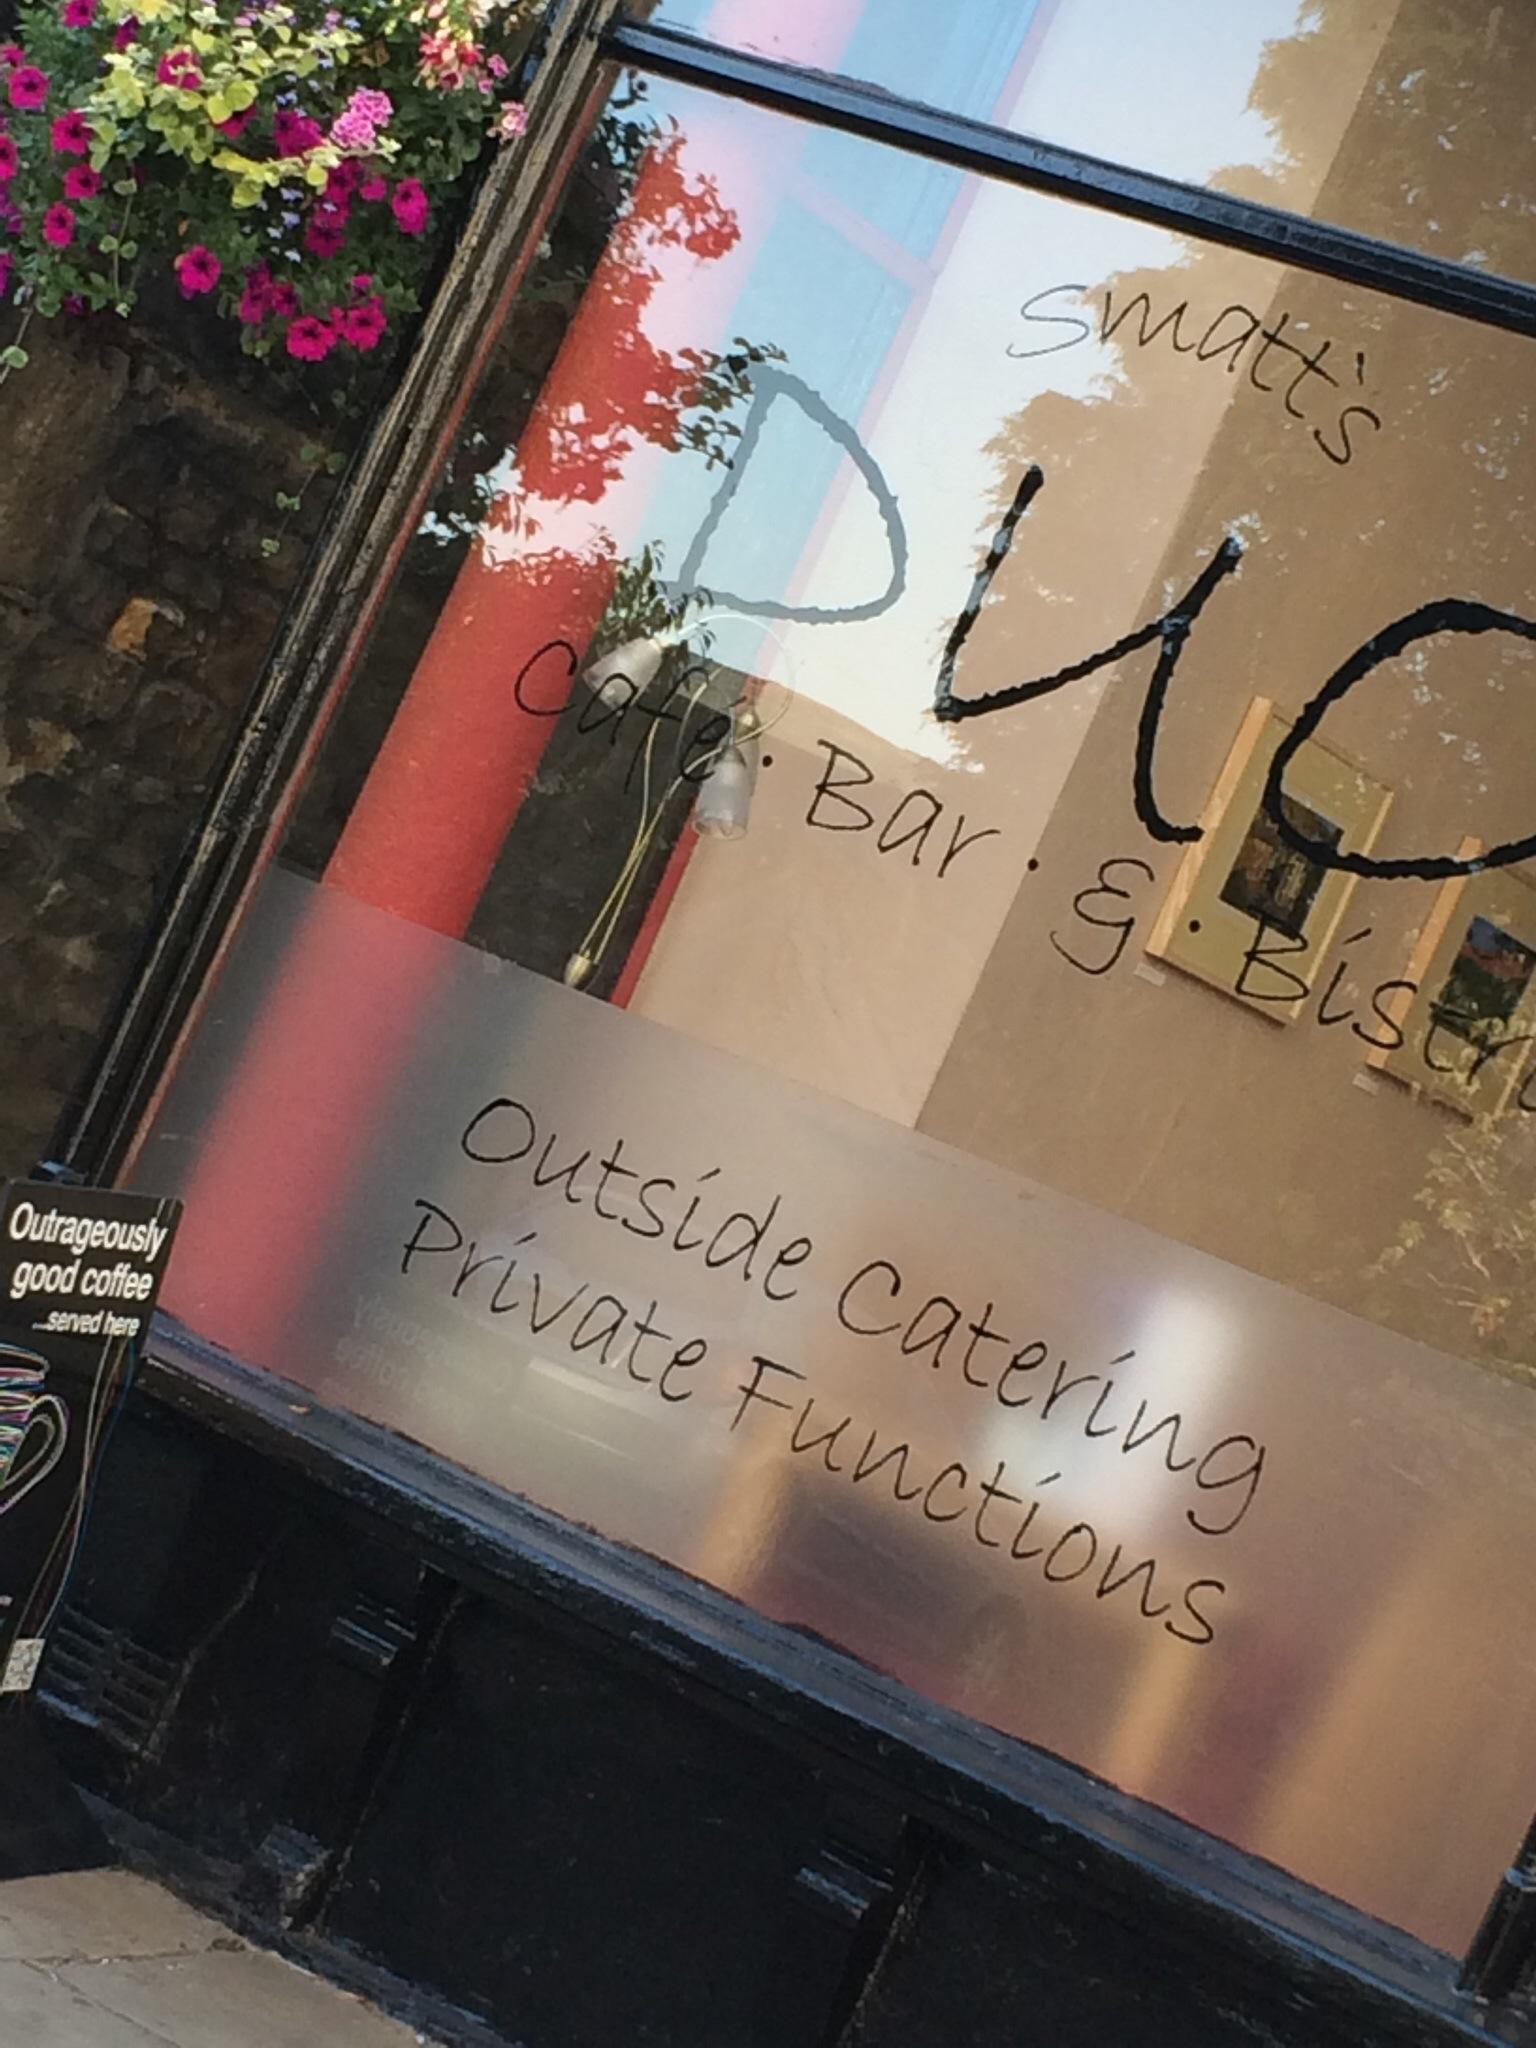 smatt's
Duo
Café · Bar · & · Bistro
Outside Catering
Private Functions
Outrageously
good coffee
...served here